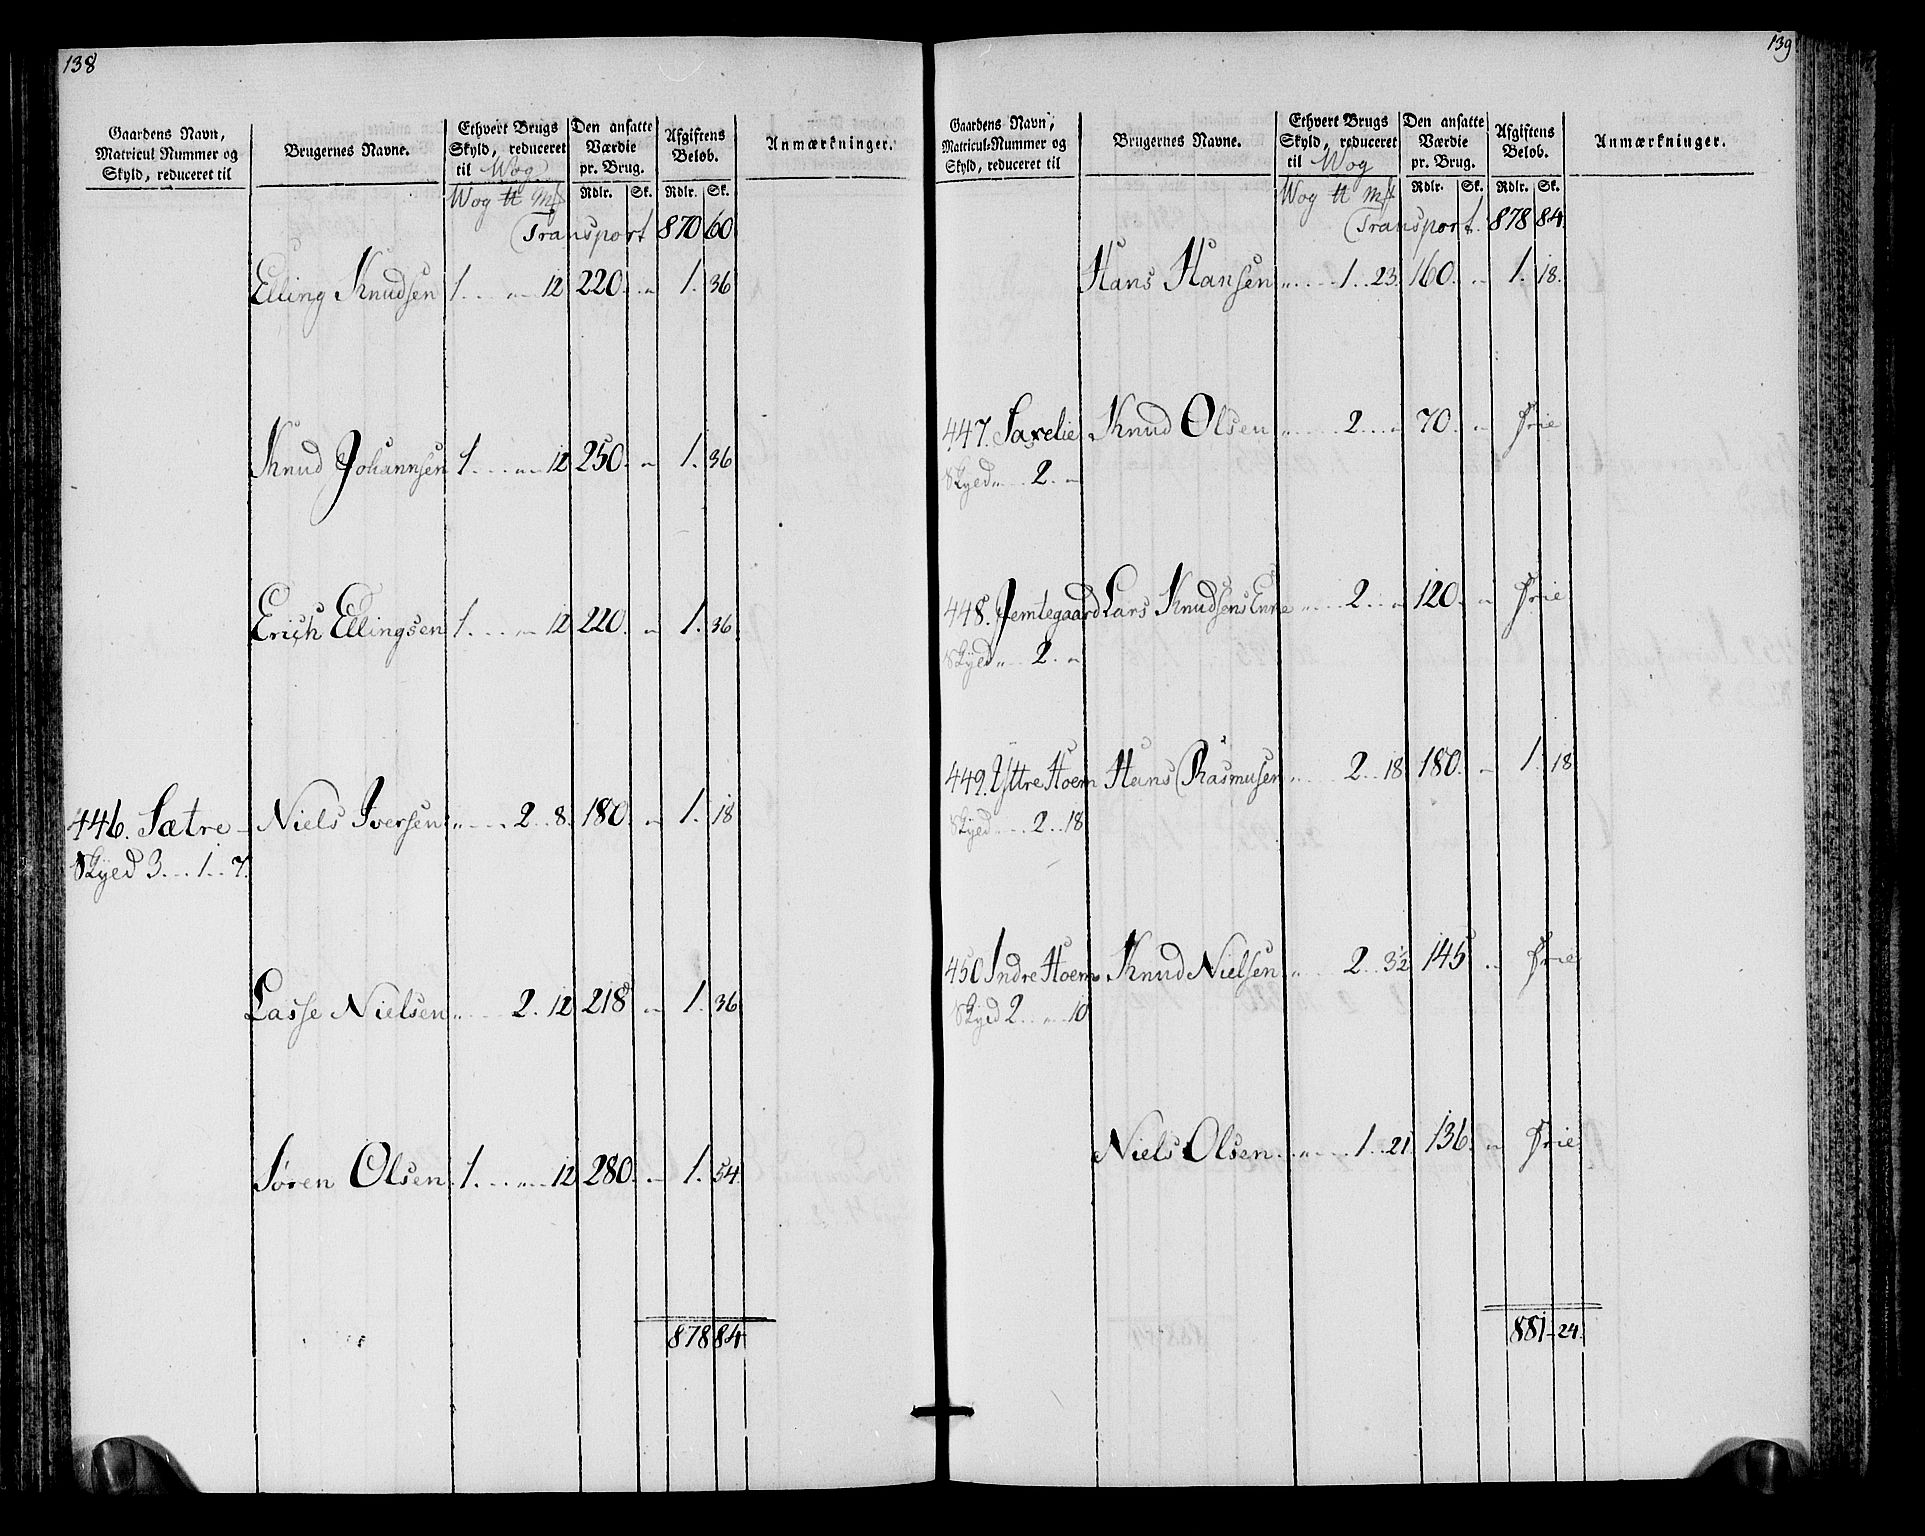 138
Gaardens Navn, Matricul Nummer og Skyld, reduceret til
Brugernes Navne.
Ethvert Brugs Skyld, reduceret til Wog
Den ansatte Værdie pr. Brug.
Afgiftens Beløb.
Anmærkninger.
Wog ℔ Mk Rdlr. Sk. Rdlr. Sk.
Transport 870 60
Elling Knudsen 1 . . . „ . . 12 220. „ 1. 36
Knud Johannsen 1 . . . „ . . 12 250. „ 1. 36
Erich Ellingsen 1 . . . „ . . 12 220. „ 1. 36
446. Sætre – Niels Iversen „ . . . 2 . . 8. 180. „ 1. 18
Skyld 3 . . . 1 . . 7.
Lasse Nielsen „ . . . 2. 12 218 „ 1. 36
Søren Olsen 1. . . . „ . . 12 280. „ 1. 54
878 84
139
Gaardens Navn, Matricul-Nummer og Skyld, reduceret til
Brugernes Navne.
Ethvert Brugs Skyld, reduceret til Wog
Den ansatte Værdie pr. Brug.
Afgiftens Beløb.
Anmærkninger.
Wog ℔ Mk Rdlr. Sk. Rdlr. Sk.
Transport. 878 84.
Hans Hansen „ . . . 1 . . 23. 160. „ 1. 18.
447. Saxelie Knud Olsen „ . . . 2 . . „ 70. „ Frie
Skyld „ . . 2. „
448. Jemtegaard Lars Knudsens Enke „ . . . 2 . . „ 120. „ Frie
Skyld „ . . 2. „
449. Yttre Hoem Hans Rasmusen „ . . . 2 . . 18 180. „ 1. 18
Skyld . . . 2 . . 18
450 Indre Hoem Knud Nielsen „ . . . 2 . . 3½ 145 „ Frie
Skyld 2 . . „ . . 10
Niels Olsen „ . . . 1 . . 21. 136. „ Frie
881 – 24.